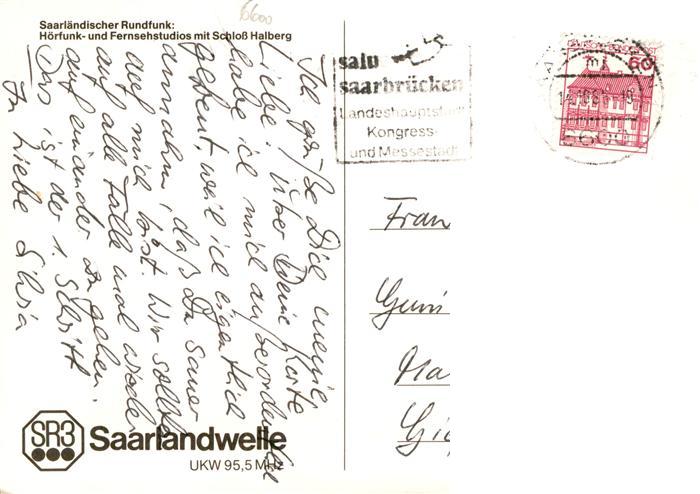 6600
Saarländischer Rundfunk:
Hörfunk- und Fernsehstudios mit Schloß Halberg
Ich grüße Dich meine
Liebe! Über Deine Karte
habe ich mich außerordentlich
gefreut, weil ich eigentlich
annahm, daß Du sauer
auf mich bist. Wir sollten
auf alle Fälle mal wieder
aufeinander zugehen.
Das ist der 1. Schritt
In Liebe Silvia
salu
saarbrücken
Landeshauptstadt
Kongress-
und Messestadt
DEUTSCHE BUNDESPOST
60
Frau
Gie
SR3 Saarlandwelle
UKW 95,5 MHz